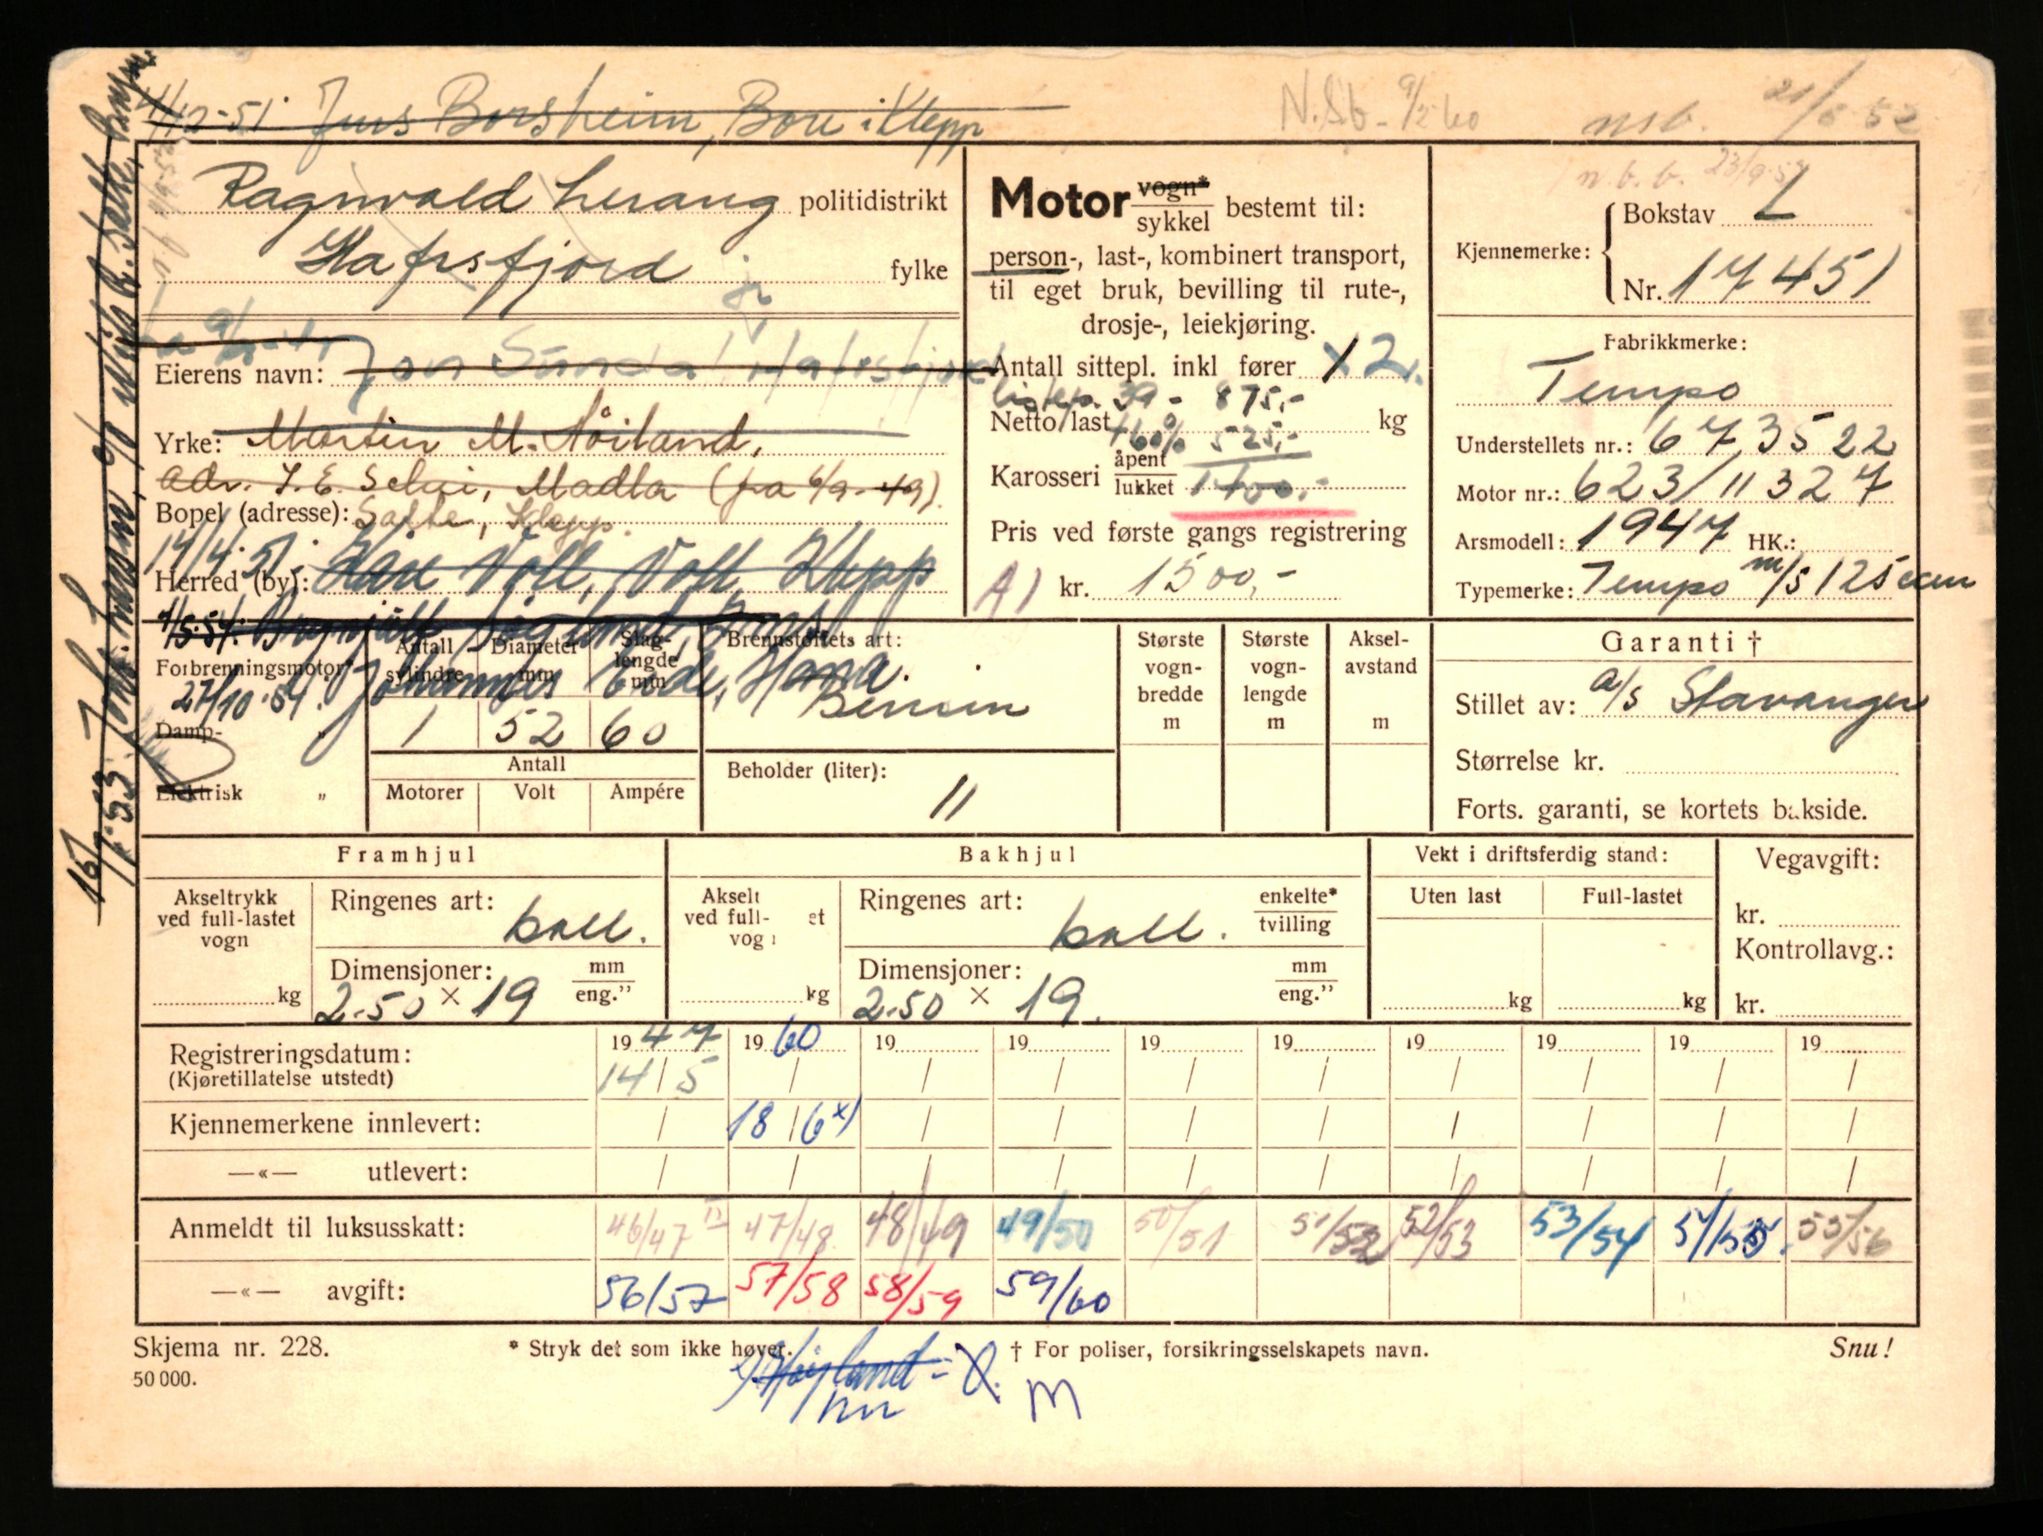 4/12-51 Jens Borsheim, Bore i Klepp
N.Sb. 9/2 60
n.s.b. 21/5 52
n.b.b. 23/9-54
Ragnvald Lerang politidistrikt
Hafrsfjord fylke
Motor vogn*/sykkel bestemt til:
person-, last-, kombinert transport,
til eget bruk, bevilling til rute-,
drosje-, leiekjøring.
Antall sittepl. inkl fører 2.
Listepr. 39 - 875,-
Netto last kg
+60% 525,-
Karosseri åpent/lukket 1400,-
Pris ved første gangs registrering
A) kr. 1500,-
Kjennemerke: Bokstav L
Nr. 17451
Fabrikkmerke:
Tempo
Understellets nr.: 673522
Motor nr.: 623/11327
Årsmodell: 1947 HK.:
Typemerke: Tempo m/s 125 ccm
Eierens navn: Jon Sunda Hafrsfjord
Yrke: Martin M. Höiland,
adr. T. E. Selvi, Madla (fra 6/9-49).
Bopel (adresse): Salte, Klepp.
17/4-51: Kåre Voll, Voll, Klepp
Herred (by):
1/5-54:
27/10-54. Johannes Eide, Hana.
16/7-53 Joh. Larsen,
Forbrenningsmotor*
Damp- „
Elektrisk „
Antall sylindre Diameter mm Slaglengde mm
1 52 60
Antall
Motorer Volt Ampére
Brennstoffets art:
Bensin
Beholder (liter):
11
Største vognbredde m
Største vognlengde m
Akselavstand m
Garanti †
Stillet av: a/s Stavanger
Størrelse kr.
Forts. garanti, se kortets bakside.
Framhjul
Akseltrykk ved full-lastet vogn kg
Ringenes art: ball.
Dimensjoner: mm/eng.”
2.50 × 19
Bakhjul
Akselt ved full- et vog kg
Ringenes art: ball. enkelte*/tvilling
Dimensjoner: mm/eng.”
2.50 × 19.
Vekt i driftsferdig stand:
Uten last Full-lastet
kg kg
Vegavgift:
kr.
Kontrollavg.:
kr.
1947 1960 19 19 19 19 19 19 19 19
Registreringsdatum: 14/5 / / / / / / / / /
(Kjøretillatelse utstedt)
Kjennemerkene innlevert: / 18/6 x) / / / / / / / /
—«— utlevert: / / / / / / / / / /
Anmeldt til luksusskatt: 46/47 47/48 48/49 49/50 50/51 51/52 52/53 53/54 54/55. 55/56
—«— avgift: 56/57 57/58 58/59 59/60
Skjema nr. 228.
* Stryk det som ikke høver.
† For poliser, forsikringsselskapets navn.
Snu!
50 000.
M